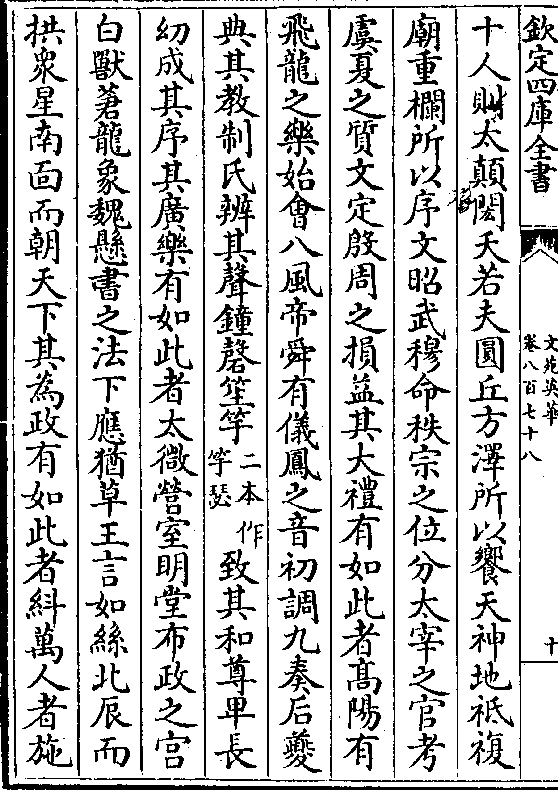 欽定四庫全書
文苑英華
卷八百七十八
十
十人則太顛閎夭若夫圓丘方澤所以饗天神地祗複
廟重欄所以序文昭武穆命秩宗之位分太宰之官考
虞夏之質文定殷周之損益其大禮有如此者髙陽有
飛龍之樂始㑹八風帝舜有儀鳳之音初調九奏后夔
典其教制氏辨其聲鐘磬笙竽二本作竽瑟致其和尊卑長
幼成其序其廣樂有如此者太微營室明堂布政之宮
白獸蒼龍象魏懸書之法下應猶草王言如絲北辰而
拱衆星南面而朝天下其為政有如此者糾萬人者施